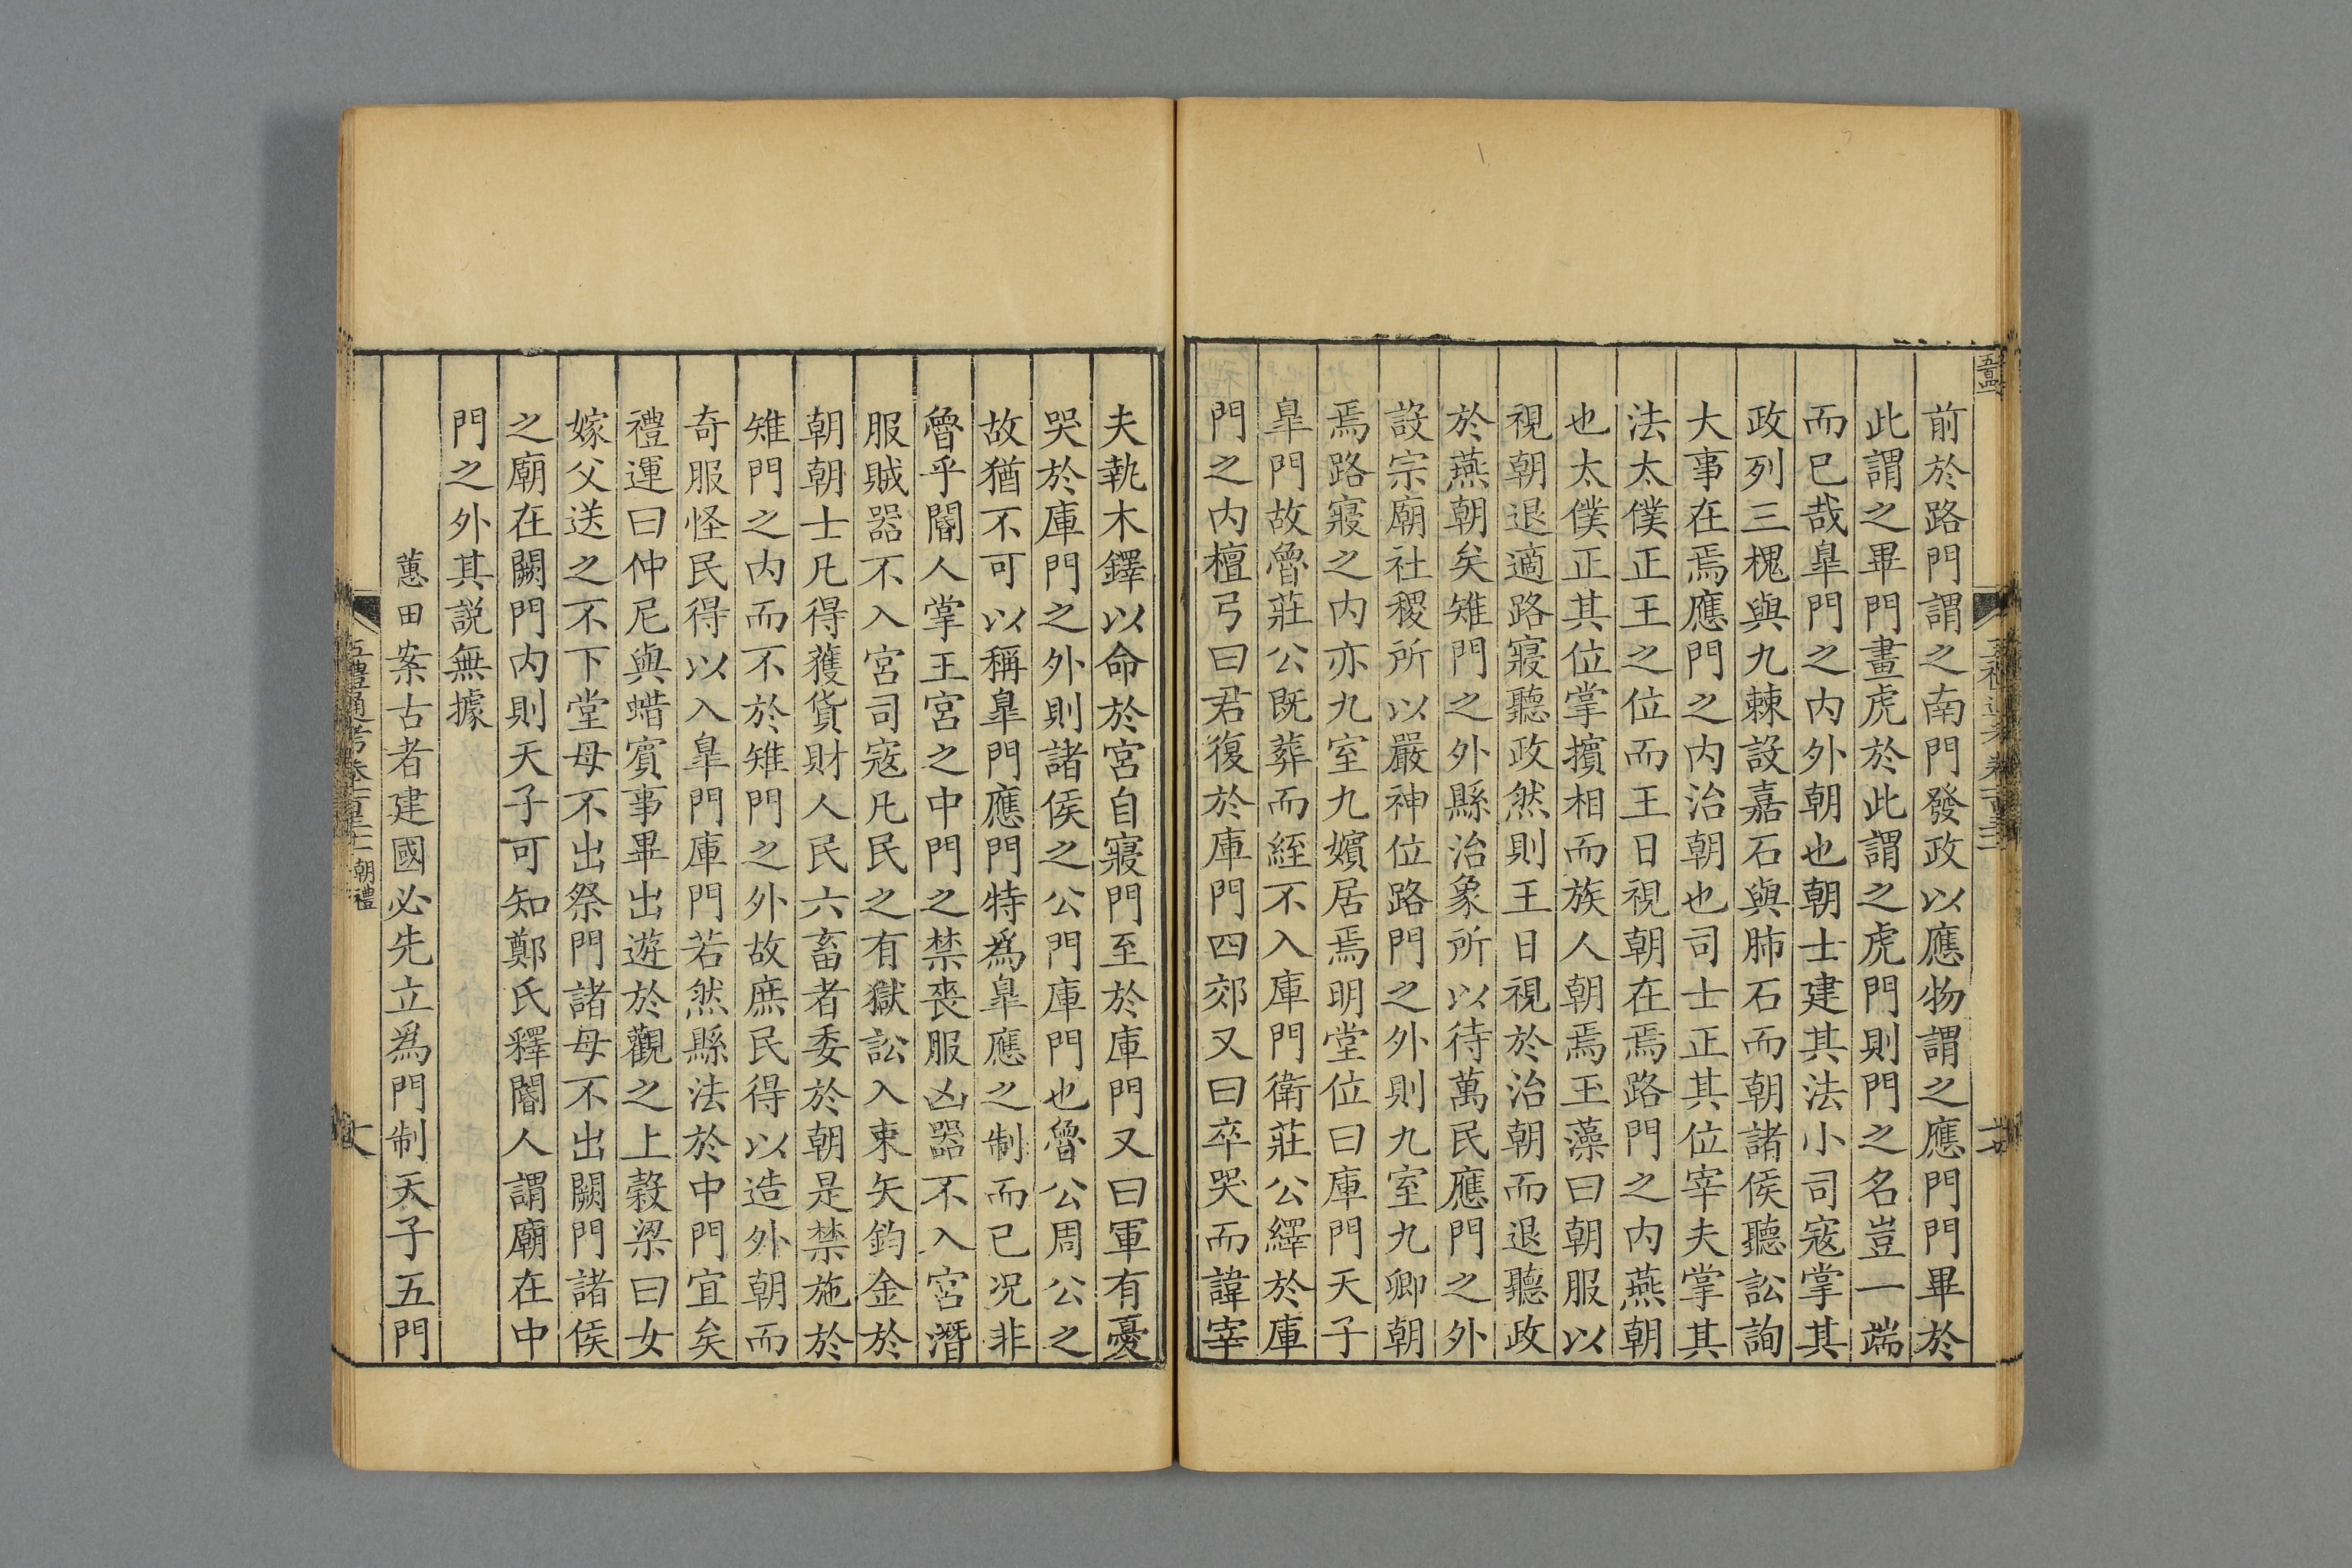 前於路門謂之南門發政以應物謂之應門門畢於
此謂之畢門畫虎於此謂之虎門則門之名豈一端
而已哉臯門之内外朝也朝士建其法小司寇掌其
政列三槐與九棘設嘉石與肺石而朝諸侯聽訟詢
大事在焉應門之内治朝也司士正其位宰夫掌其
法太僕正王之位而王日視朝在焉路門之内燕朝
也太僕正其位掌擯相而族人朝焉玉藻曰朝服以
視朝退適路寢聽政然則王日視於治朝而退聽政
於燕朝矣雉門之外縣治象所以待萬民應門之外
設宗廟社稷所以嚴神位路門之外則九室九卿朝
焉路寢之内亦九室九嬪居焉明堂位曰庫門天子
臯門故魯莊公既葬而絰不入庫門衛莊公繹於庫
門之内檀弓曰君復於庫門四郊又曰卒哭而諱宰
夫執木鐸以命於宮自寢門至於庫門又曰軍有憂
哭於庫門之外則諸侯之公門庫門也魯公周公之
故猶不可以稱臯門應門特爲臯應之制而已况非
魯乎閽人掌王宮之中門之禁喪服凶器不入宮潛
服賊器不入宮司寇凡民之有獄訟入束矢鈞金於
朝朝士凡得獲貨財人民六畜者委於朝是禁施於
雉門之内而不於雉門之外故庶民得以造外朝而
奇服怪民得以入臯門庫門若然縣法於中門宜矣
禮運曰仲尼與蜡賓事畢出遊於觀之上穀梁曰女
嫁父送之不下堂母不出祭門諸母不出闕門諸侯
之廟在闕門内則天子可知鄭氏釋閽人謂廟在中
門之外其説無據
蕙田案古者建國必先立爲門制天子五門
朝禮